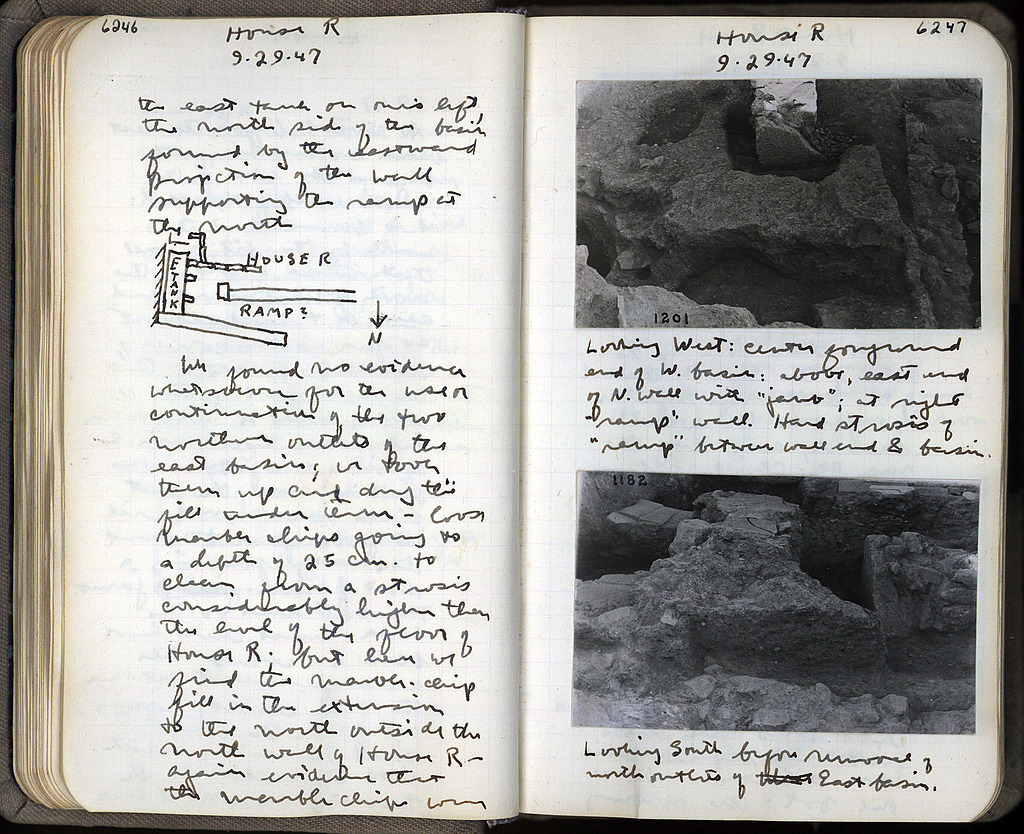 6246
House R
9.29.47
the east tank on our left,
the north side of the basin
formed by the eastward
projection of the wall
supporting the ramp at
the north
HOUSE R
E TANK
RAMP?
N
We found no evidence
whatsoever for the use or
continuation of the two
northern outlets of the
east basin; we
them up and dug the
fill under them - loose
marble chips going to
a depth of 25 cm. to
clean from a strosis
considerably higher than
the level of the floor of
House R; but here we
find the marble-chip
fill in the extension
to the north outside the
north wall of House R -
again evidence that
the marble chips were
6247
House R
9.29.47
1201
Looking West: center foreground
end of W. basin; above, east end
of N. wall with "jamb"; at right
"ramp" wall. Hard strosis of
"ramp" between wall end & basin.
1182
Looking South before removal of
north outlets of East basin.